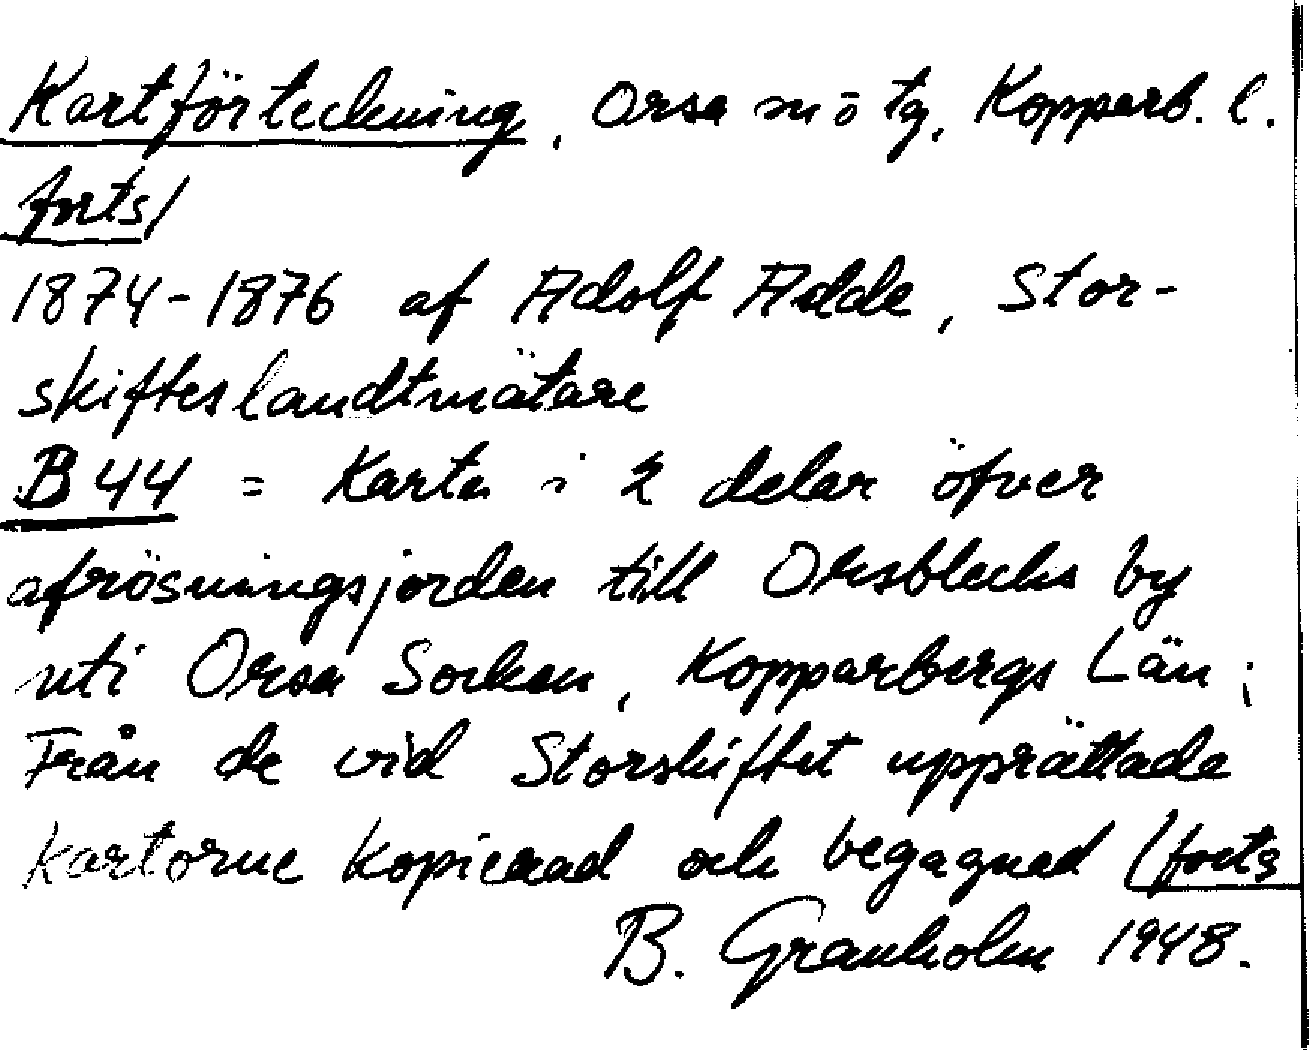 Kartförteckning, Orsa m ö tg, Kopparb. l.
forts/
1874-1876 af Adolf Adde, Stor-
skifteslandtmätare
B 44 = Karta i 2 delar öfver
afrösningsjorden till Orsblecks by
uti Orsa Socken, Kopparbergs Län;
Från de vid Storskiftet upprättade
kartorne kopierad och begagnad (forts
B. Granholm 1948.